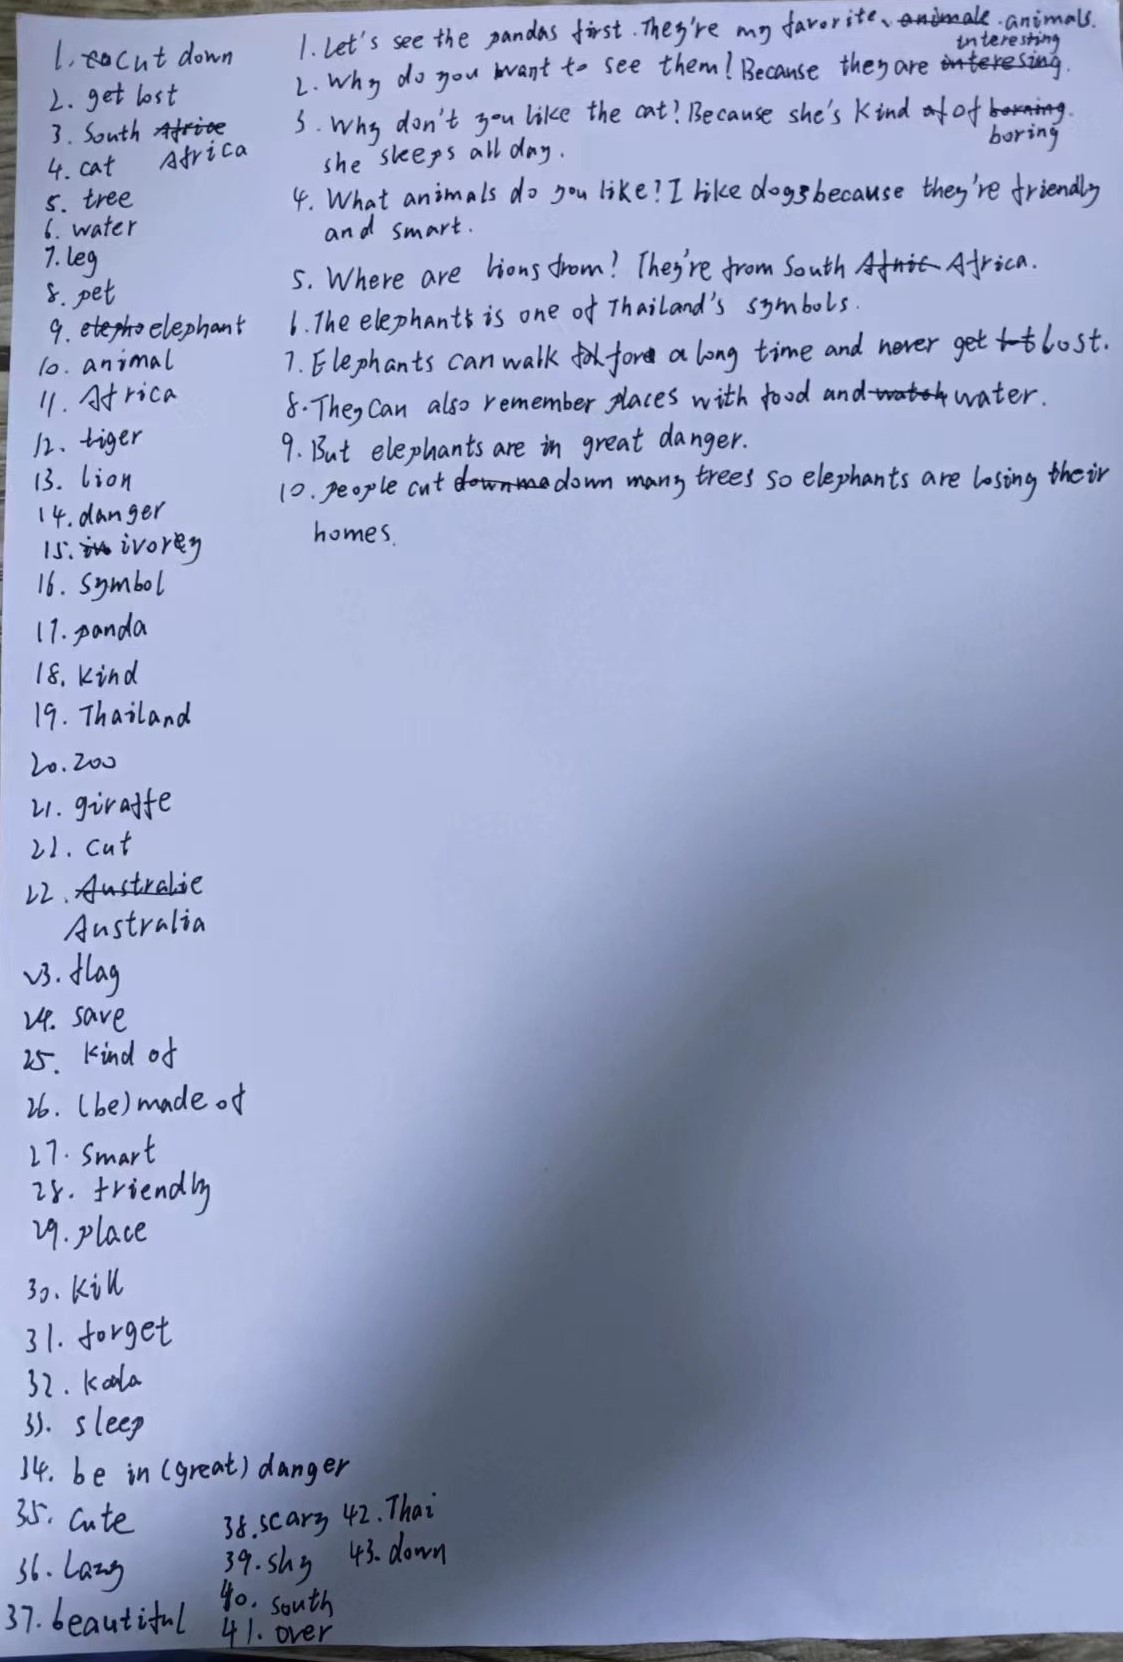 1. cut down
2. get lost
3. South Africa
4. cat
5. tree
6. water
7. leg
8. pet
9. elephant
10. animal
11. Africa
12. tiger
13. lion
14. danger
15. ivorey
16. symbol
17. panda
18. kind
19. Thailand
20. zoo
21. giraffe
21. cut
22. Australie
Australia
23. flag
24. save
25. kind of
26. (be) made of
27. smart
28. friendly
29. place
30. kill
31. forget
32. koala
33. sleep
34. be in (great) danger
35. cute
36. Lazy
37. beautiful
38. scary
39. shy
40. south
41. over
42. Thai
43. down
1. Let's see the pandas first. They're my favorite animals.
2. Why do you want to see them? Because they are interesting.
3. Why don't you like the cat? Because she's kind of boring.
she sleeps all day.
4. What animals do you like? I like dogs because they're friendly
and smart.
5. Where are lions from? They're from South Africa.
6. The elephants is one of Thailand's symbols.
7. Elephants can walk for a long time and never get lost.
8. They can also remember places with food and water.
9. But elephants are in great danger.
10. People cut down many trees so elephants are losing their
homes.